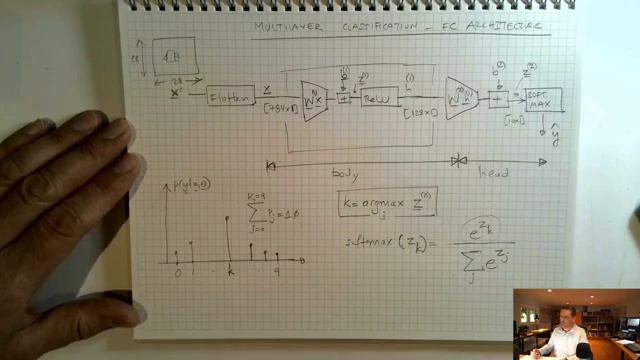 MULTILAYER CLASSIFICATION - FC ARCHITECTURE
28
28
X
Flatten
x
[784x1]
W(1) x
b(1)
+
z(1)
ReLU
h(1)
[128x1]
W(2) h
b(2)
+
z(2)
[10x1]
SOFT
MAX
ŷ
body
head
p(y|x,θ)
K=9
∑ Pj = 1.0
j=0
0 1 . k 9
K = argmax z(2)
j
softmax (zk) = e^zk
∑ e^zj
j